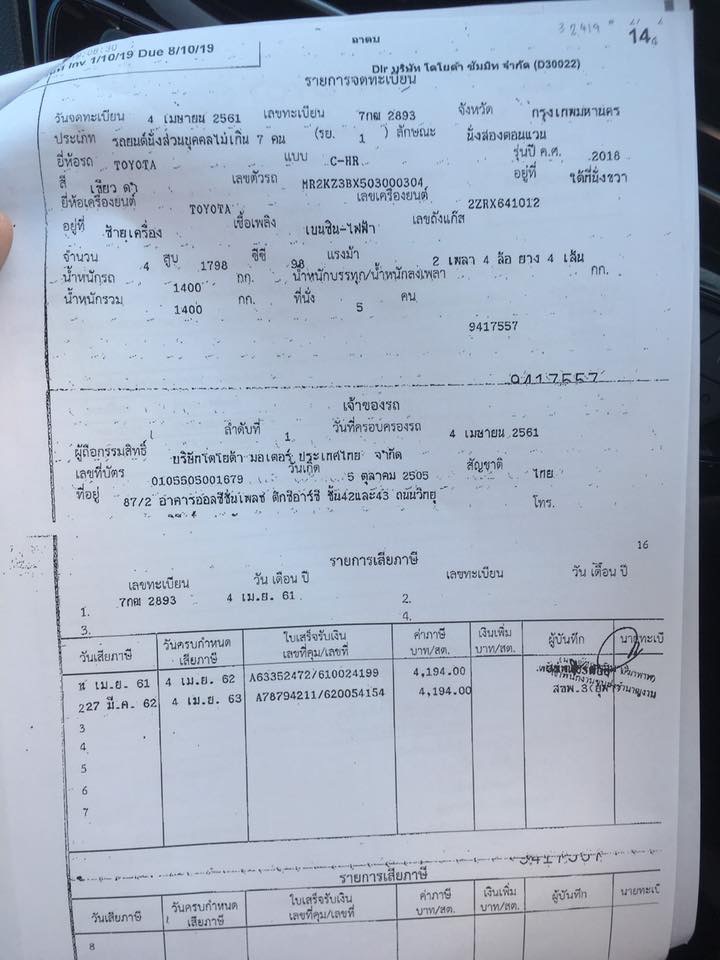 32419
14
Inv 1/10/19 Due 8/10/19
ถาดบ
Dlr บริษัท โตโยต้า ซัมมิท จำกัด (D30022)
รายการจดทะเบียน
วันจดทะเบียน 4 เมษายน 2561 เลขทะเบียน 7กฌ 2893 จังหวัด กรุงเทพมหานคร
ประเภท รถยนต์นั่งส่วนบุคคลไม่เกิน 7 คน (รย. 1 ) ลักษณะ นั่งสองตอนแวน
ยี่ห้อรถ TOYOTA แบบ C-HR รุ่นปี ค.ศ. 2018
สี เขียว ดำ เลขตัวรถ MR2KZ3BX503000304 อยู่ที่ ใต้ที่นั่งขวา
ยี่ห้อเครื่องยนต์ TOYOTA เลขเครื่องยนต์ 2ZRX641012
อยู่ที่ ซ้ายเครื่อง เชื้อเพลิง เบนซิน-ไฟฟ้า เลขถังแก๊ส
จำนวน 4 สูบ 1798 ซีซี 98 แรงม้า 2 เพลา 4 ล้อ ยาง 4 เส้น
น้ำหนักรถ 1400 กก. น้ำหนักบรรทุก/น้ำหนักลงเพลา กก.
น้ำหนักรวม 1400 กก. ที่นั่ง 5 คน
9417557
9417557
เจ้าของรถ
ลำดับที่ 1 วันที่ครอบครองรถ 4 เมษายน 2561
ผู้ถือกรรมสิทธิ์ บริษัทโตโยต้า มอเตอร์ ประเทศไทย จำกัด
เลขที่บัตร 0105505001679 วันเกิด 5 ตุลาคม 2505 สัญชาติ ไทย
ที่อยู่ 87/2 อาคารออลซีซั่นเพลซ ตึกซีอาร์ซี ชั้น42และ43 ถนนวิทยุ โทร.
16
รายการเสียภาษี
เลขทะเบียน วัน เดือน ปี เลขทะเบียน วัน เดือน ปี
1. 7กฌ 2893 4 เม.ย. 61 2.
3. 4.
วันเสียภาษี วันครบกำหนดเสียภาษี ใบเสร็จรับเงิน เลขที่คุม/เลขที่ ค่าภาษี บาท/สต. เงินเพิ่ม บาท/สต. ผู้บันทึก นายทะเบี
เม.ย. 61 4 เม.ย. 62 A63352472/610024199 4,194.00
2 27 มี.ค. 62 4 เม.ย. 63 A78794211/620054154 4,194.00 สขพ.3
3
4
5
6
7
9417557
รายการเสียภาษี
วันเสียภาษี วันครบกำหนดเสียภาษี ใบเสร็จรับเงิน เลขที่คุม/เลขที่ ค่าภาษี บาท/สต. เงินเพิ่ม บาท/สต. ผู้บันทึก นายทะเบี
8